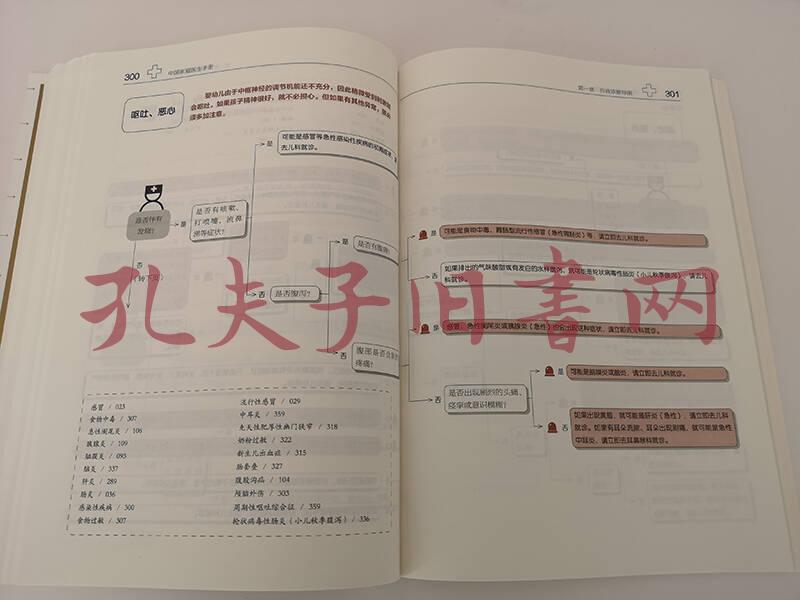 300
中国家庭医生手册
呕吐、恶心
婴幼儿由于中枢神经的调节机能还不充分，因此稍微受到刺激就
会呕吐。如果孩子精神很好，就不必担心。但如果有其他异常，就必
须多加注意。
是
可能是感冒等急性感染性疾病的初期症状，
去儿科就诊。
是否伴有
发烧？
是
是否有咳嗽、
打喷嚏、流鼻
涕等症状？
否
（转下页）
否
是否腹泻？
是
是否有腹痛？
否
腹部是否会剧烈
疼痛？
感冒 / 023
食物中毒 / 307
急性阑尾炎 / 106
胰腺炎 / 109
脑膜炎 / 095
脑炎 / 337
肝炎 / 289
肠炎 / 036
感染性疾病 / 300
食物过敏 / 307
流行性感冒 / 029
中耳炎 / 359
先天性肥厚性幽门狭窄 / 318
奶粉过敏 / 322
新生儿出血症 / 315
肠套叠 / 327
腹股沟疝 / 104
颅脑外伤 / 303
周期性呕吐综合征 / 359
轮状病毒性肠炎（小儿秋季腹泻） / 336
第一章 自我诊断导图
301
是
可能是食物中毒、胃肠型流行性感冒（急性胃肠炎）等，请立即去儿科就诊。
否
如果排出的气味酸甜或有发白的水样粪便，就可能是轮状病毒性肠炎（小儿秋季腹泻），请去儿
科就诊。
是
感冒、急性阑尾炎或胰腺炎（急性）也会出现这种症状，请立即去儿科就诊。
否
是否出现剧烈的头痛、
痉挛或意识模糊？
是
可能是脑膜炎或脑炎，请立即去儿科就诊。
否
如果出现黄疸，就可能是肝炎（急性），请立即去儿科
就诊。如果有耳朵流脓、耳朵出现剧痛，就可能是急性
中耳炎，请立即去耳鼻喉科就诊。
孔夫子旧书网